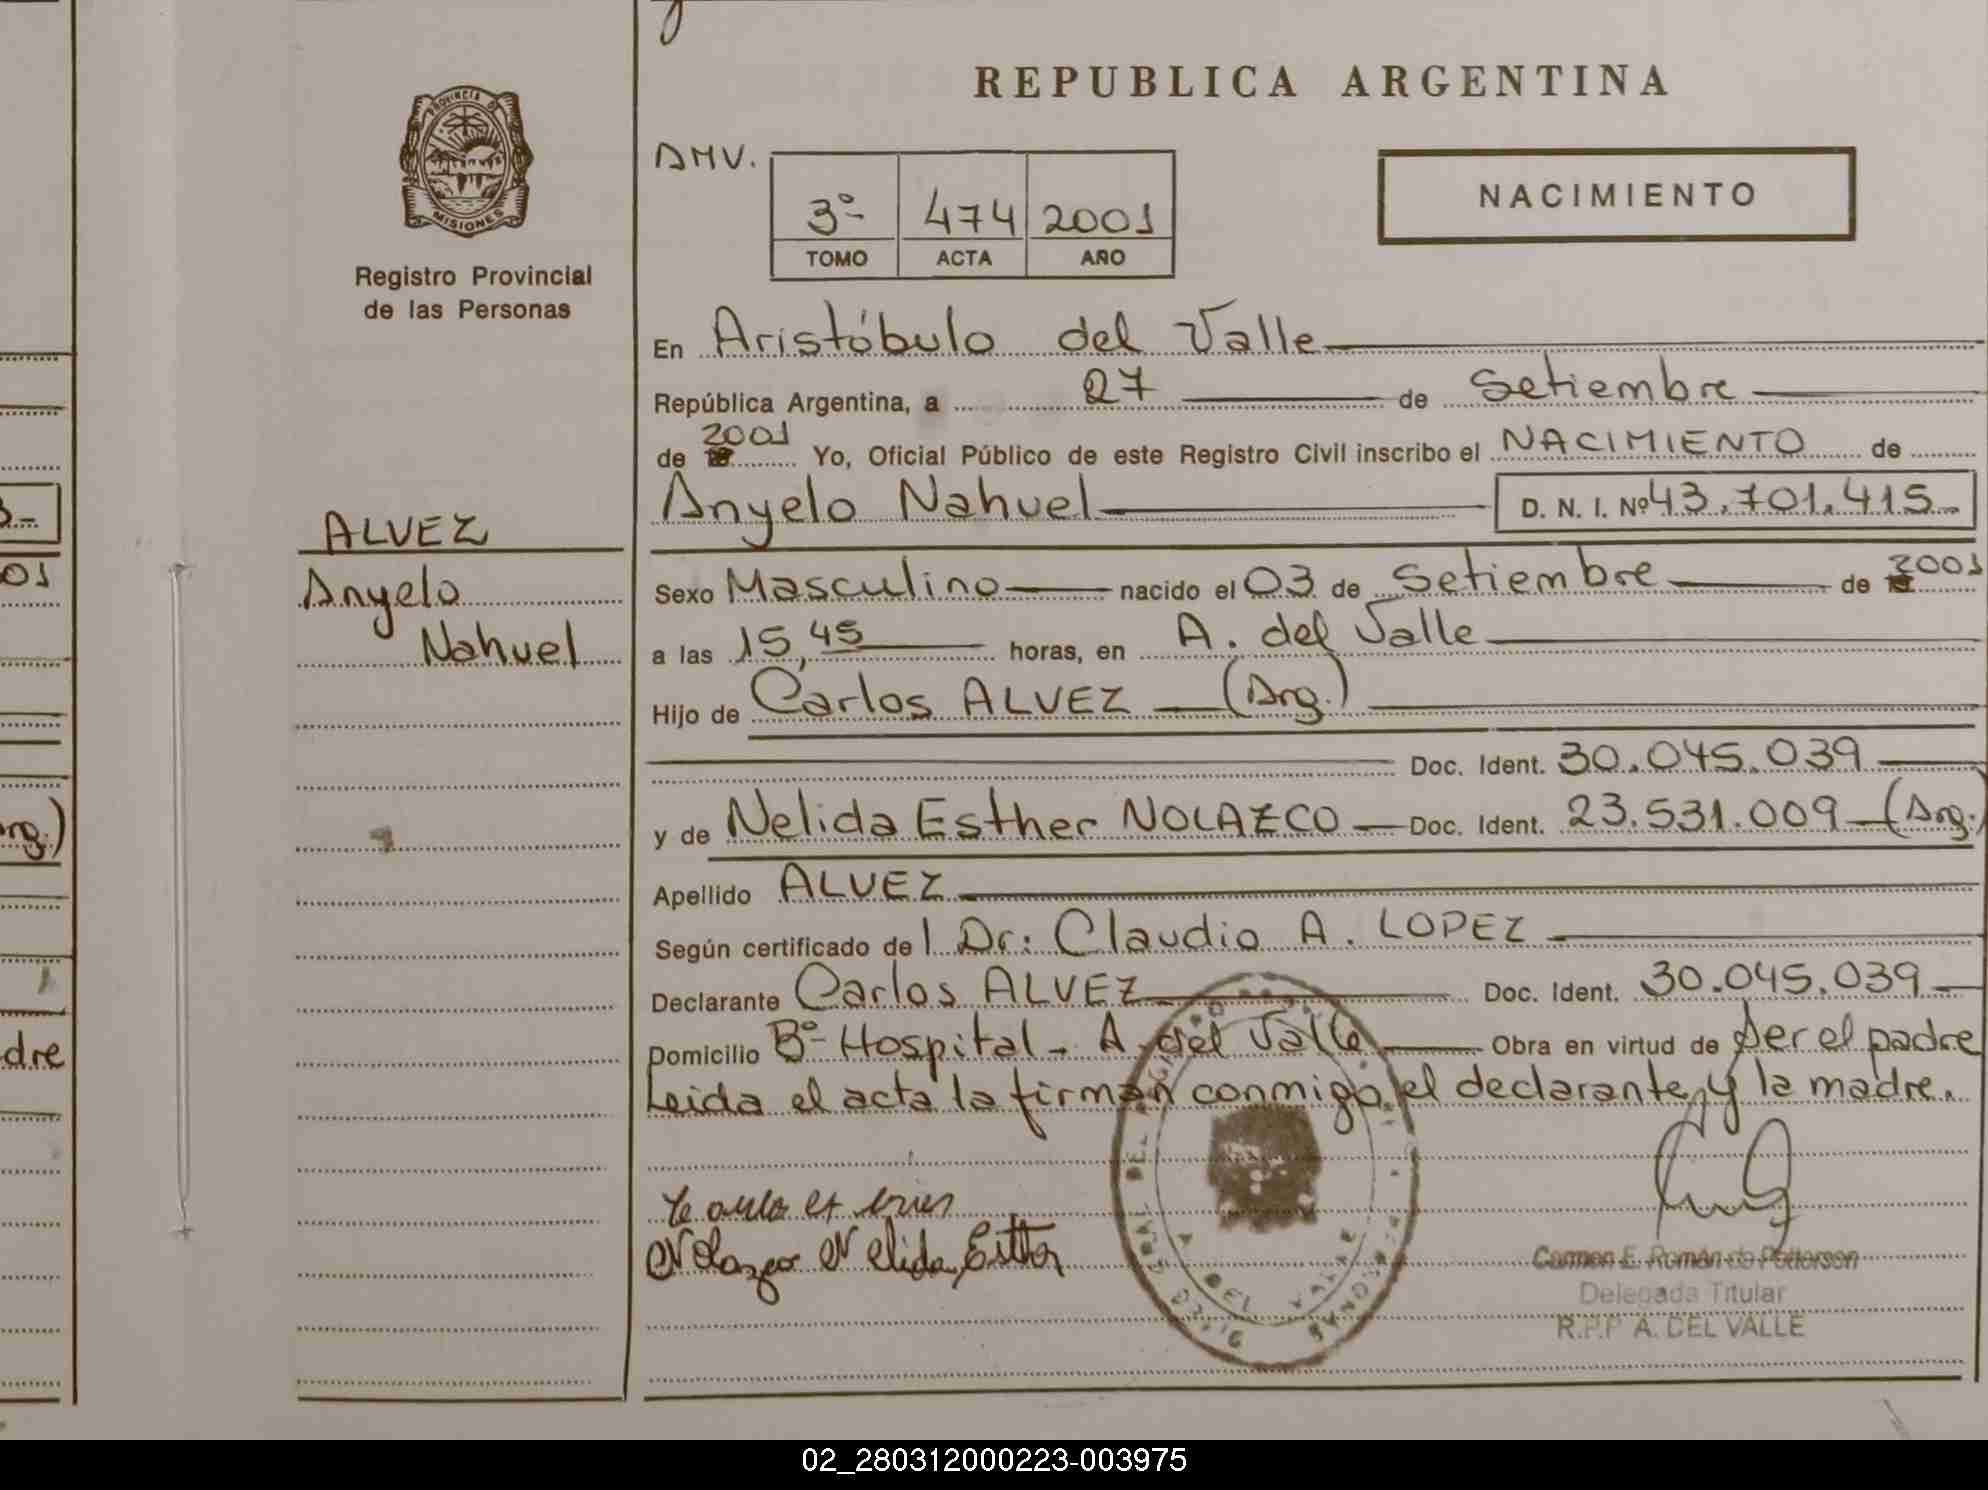 REPUBLICA ARGENTINA
PROVINCIA DE
MISIONES
Registro Provincial
de las Personas
AMV.
3º 474 2001
TOMO ACTA AÑO
NACIMIENTO
En Aristóbulo del Valle
República Argentina, a 27 de Setiembre
de 2001 Yo, Oficial Público de este Registro Civil inscribo el NACIMIENTO de
Anyelo Nahuel D. N. I. Nº 43.701.415
ALVEZ
Anyelo
Nahuel
Sexo Masculino nacido el 03 de Setiembre de 2001
a las 15,45 horas, en A. del Valle
Hijo de Carlos ALVEZ (Arg.)
Doc. Ident. 30.045.039
y de Nelida Esther NOLAZCO Doc. Ident. 23.531.009 (Arg.)
Apellido ALVEZ
Según certificado del Dr: Claudio A. LOPEZ
Declarante Carlos ALVEZ Doc. Ident. 30.045.039
Domicilio Bº Hospital - A. del Valle Obra en virtud de Ser el padre
Leida el acta la firman conmigo, el declarante, y la madre.
Nolazco Nelida Esther
A. DEL VALLE
Carmen E. Román de Patterson
Delegada Titular
R.P.P A. DEL VALLE
3-
01
arg.)
dre
02_280312000223-003975